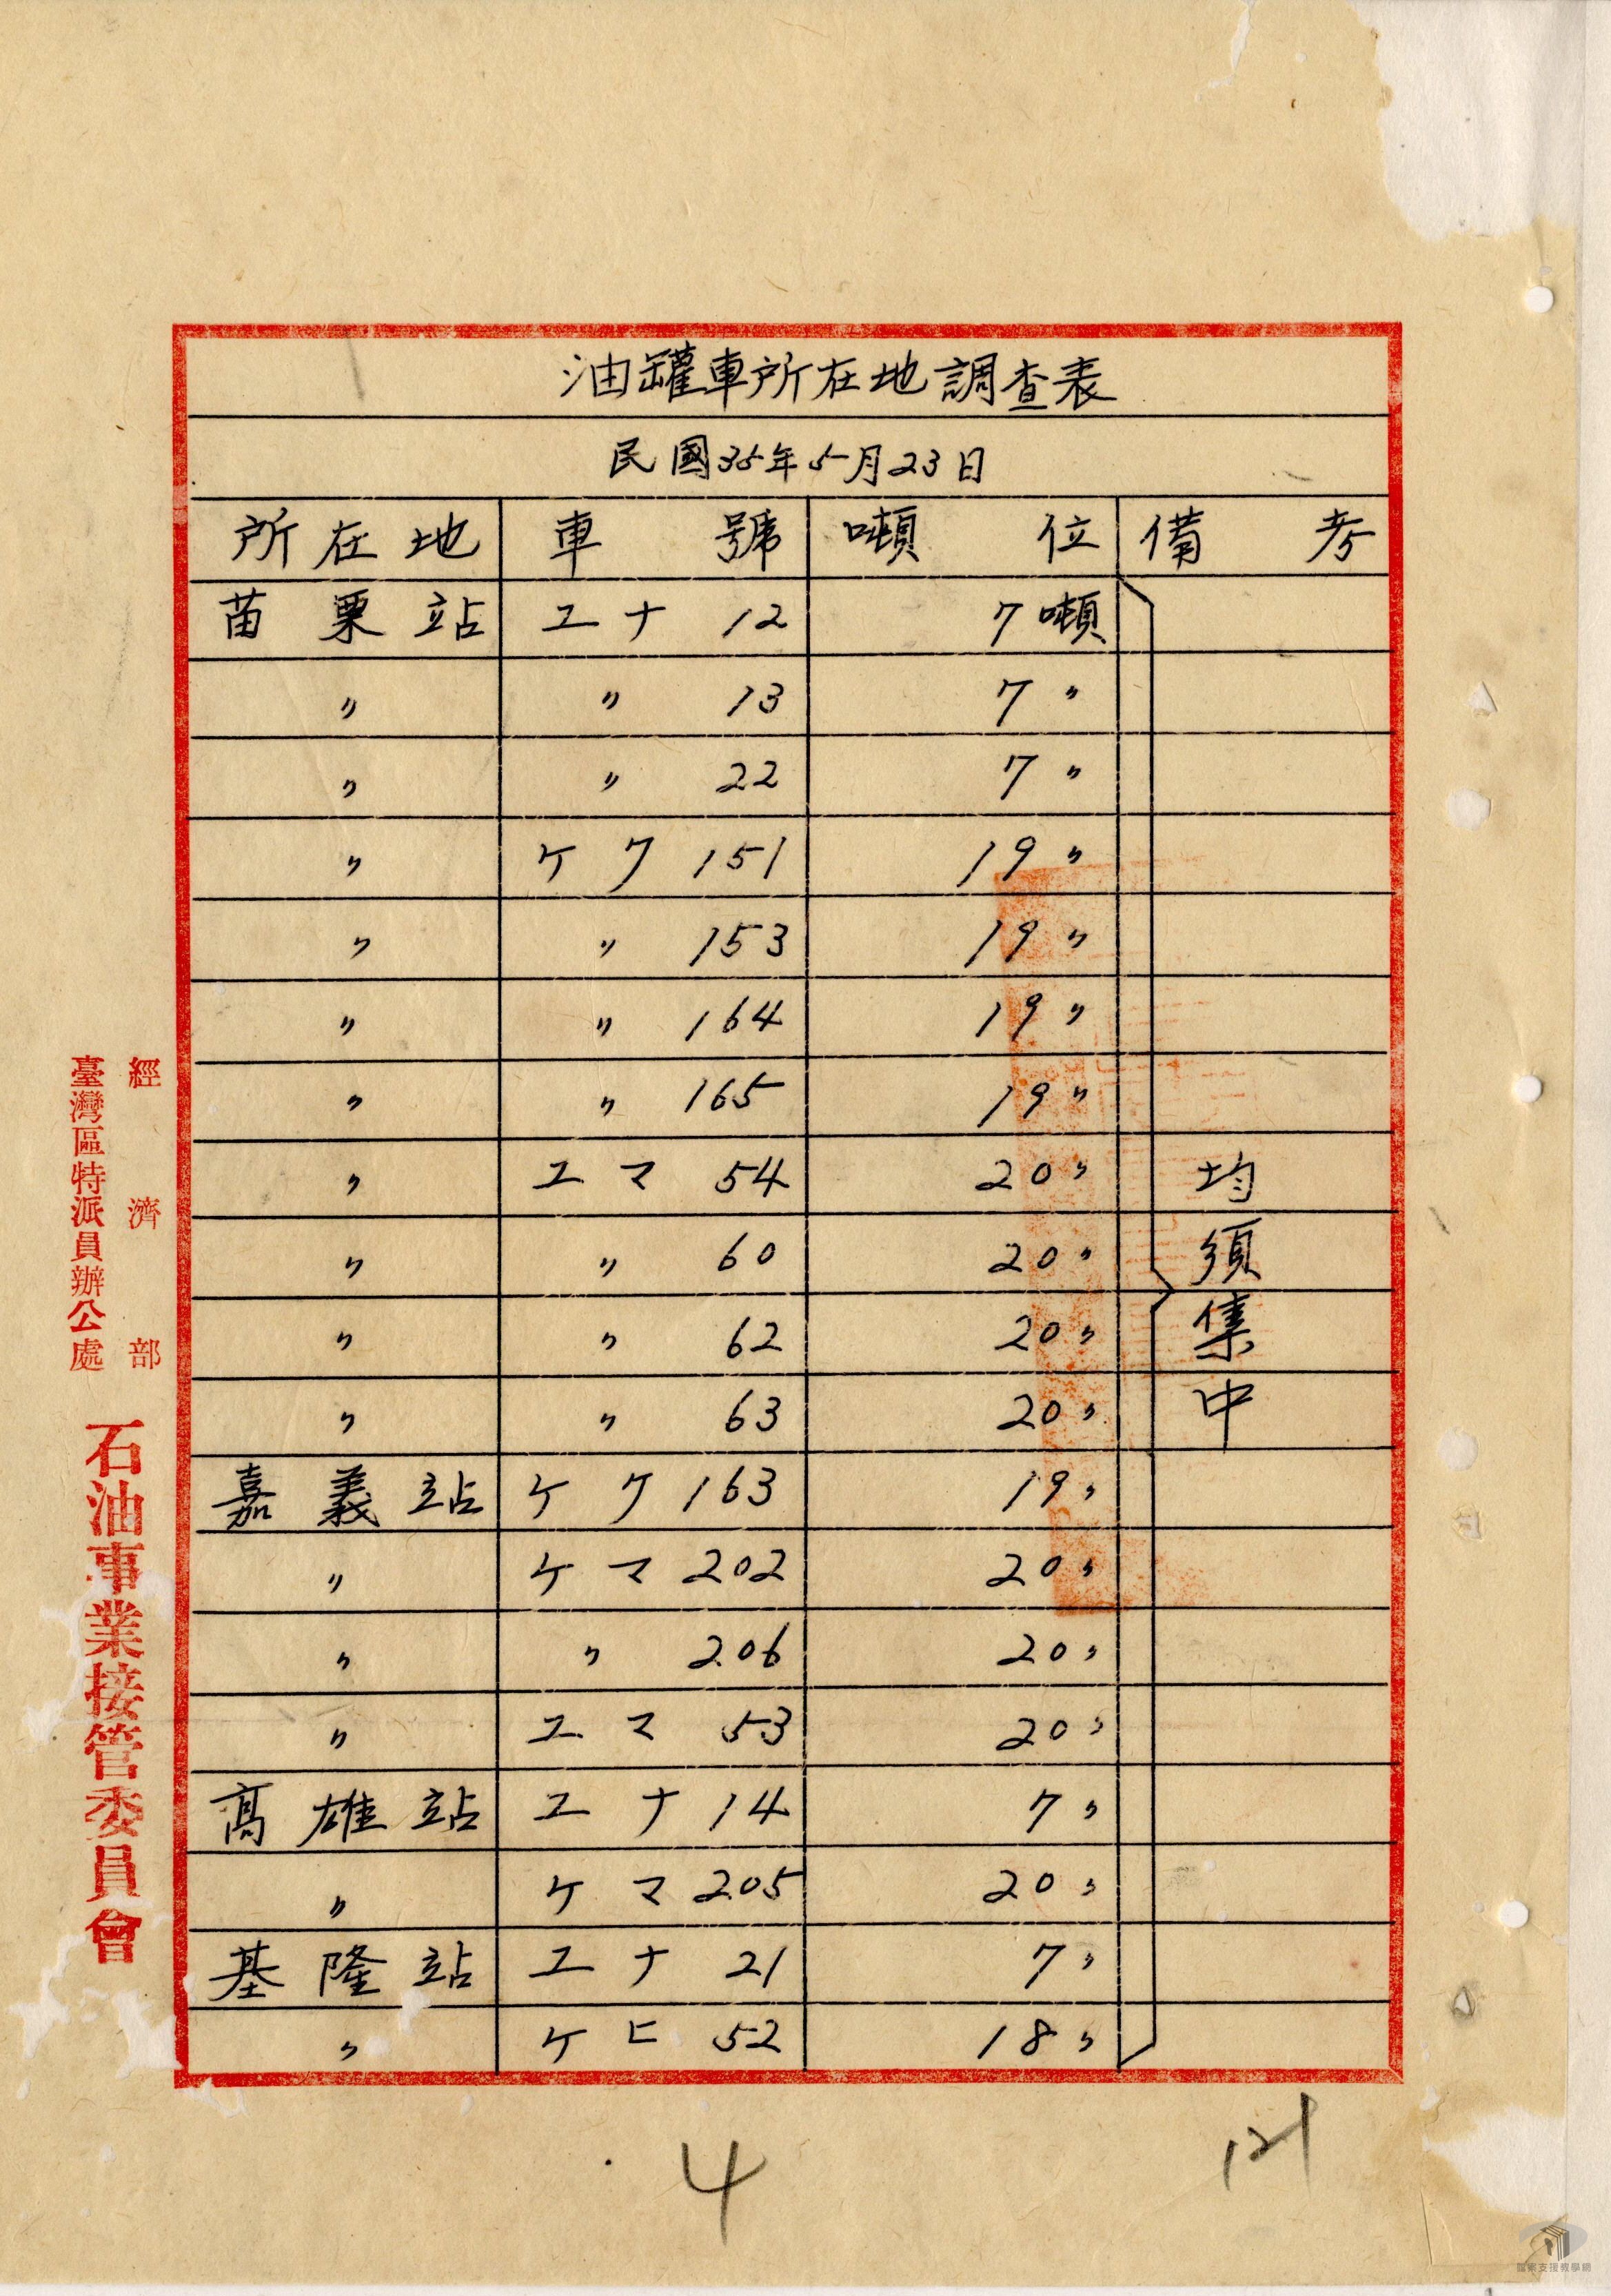 油罐車所在地調査表
民國35年5月23日
所在地 車號 噸位 備考
苗栗站 エナ 12 7噸
〃 〃 13 7〃
〃 〃 22 7〃
〃 ケク 151 19〃
〃 〃 153 19〃
〃 〃 164 19〃
〃 〃 165 19〃
〃 エマ 54 20〃
〃 〃 60 20〃
〃 〃 62 20〃
〃 〃 63 20〃
嘉義站 ケク 163 19〃
〃 ケマ 202 20〃
〃 〃 206 20〃
〃 エマ 53 20〃
高雄站 エナ 14 7〃
〃 ケマ 205 20〃
基隆站 エナ 21 7〃
〃 ケヒ 52 18〃
均須集中
經濟部
臺灣區特派員辦公處
石油事業接管委員會
4
121
檔案支援教學網